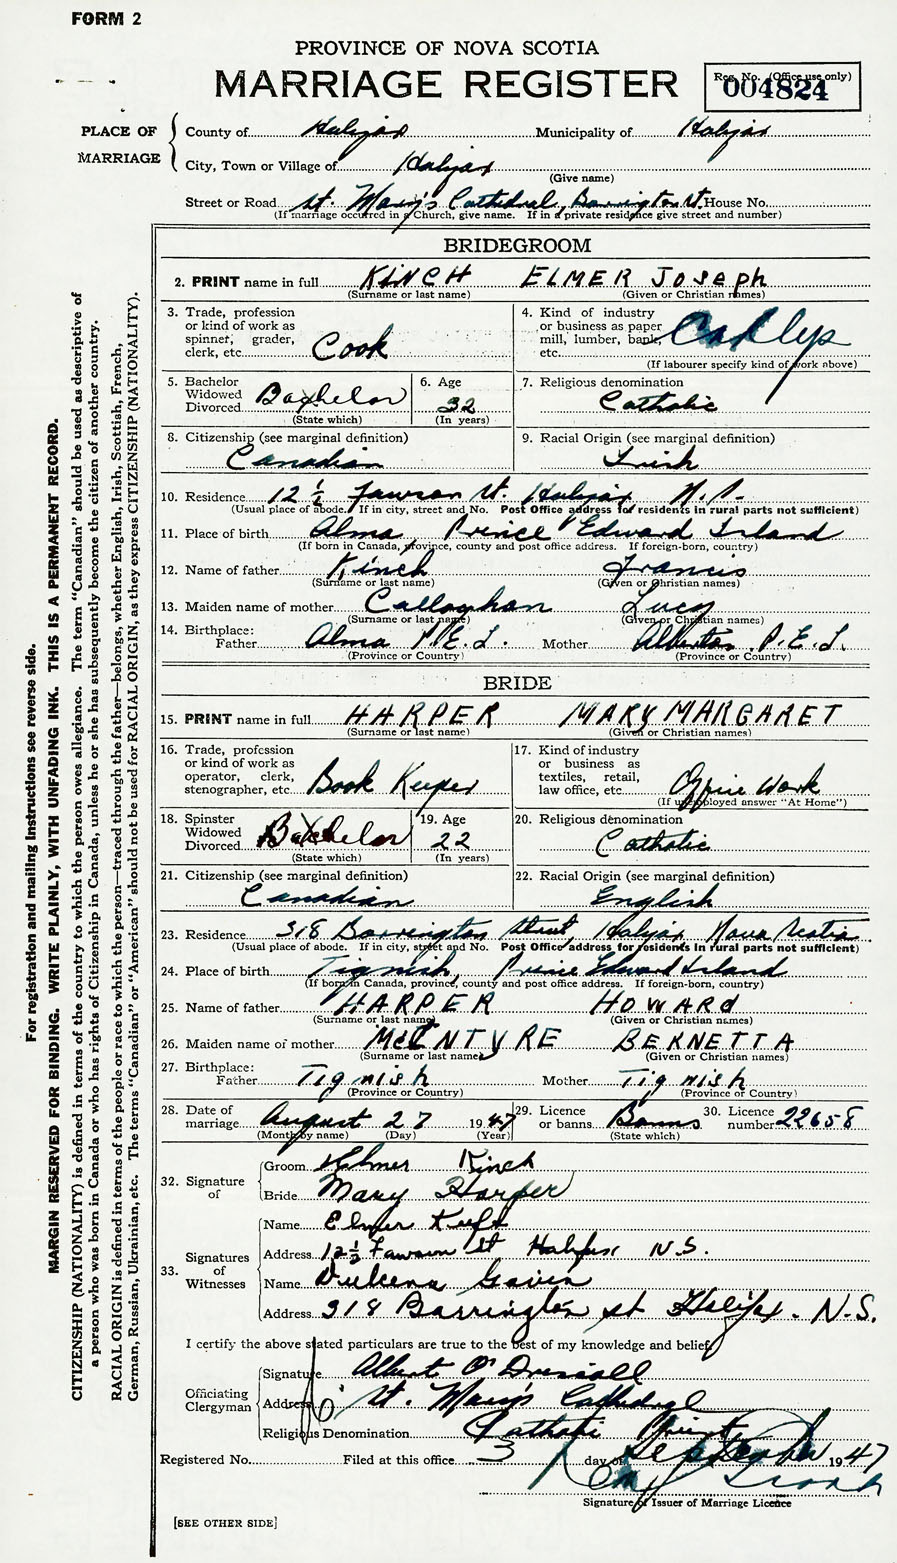 FORM 2
PROVINCE OF NOVA SCOTIA
MARRIAGE REGISTER
Reg. No. (Office use only)
004824
PLACE OF MARRIAGE
County of Halifax Municipality of Halifax
City, Town or Village of Halifax
(Give name)
Street or Road St. Mary's Cathedral, Barrington St. House No.
(If marriage occurred in a Church, give name. If in a private residence give street and number)
BRIDEGROOM
2. PRINT name in full KINCH ELMER JOSEPH
(Surname or last name) (Given or Christian names)
3. Trade, profession or kind of work as spinner, grader, clerk, etc. Cook
4. Kind of industry or business as paper mill, lumber, bank, etc.
(If labourer specify kind of work above)
5. Bachelor Widowed Divorced Bachelor
(State which)
6. Age 32
(In years)
7. Religious denomination Catholic
8. Citizenship (see marginal definition) Canadian
9. Racial Origin (see marginal definition) Irish
10. Residence 12½ Fawson St. Halifax N.S.
(Usual place of abode. If in city, street and No. Post Office address for residents in rural parts not sufficient)
11. Place of birth Alma, Prince Edward Island
(If born in Canada, province, county and post office address. If foreign-born, country)
12. Name of father Kinch Francis
(Surname or last name) (Given or Christian names)
13. Maiden name of mother Callaghan Lucy
(Surname or last name) (Given or Christian names)
14. Birthplace: Father Alma P.E.I. Mother Alberton P.E.I.
(Province or Country) (Province or Country)
BRIDE
15. PRINT name in full HARPER MARY MARGARET
(Surname or last name) (Given or Christian names)
16. Trade, profession or kind of work as operator, clerk, stenographer, etc. Book Keeper
17. Kind of industry or business as textiles, retail, law office, etc. Office Work
(If unemployed answer "At Home")
18. Spinster Widowed Divorced Bachelor
(State which)
19. Age 22
(In years)
20. Religious denomination Catholic
21. Citizenship (see marginal definition) Canadian
22. Racial Origin (see marginal definition) English
23. Residence 318 Barrington Street, Halifax Nova Scotia
(Usual place of abode. If in city, street and No. Post Office address for residents in rural parts not sufficient)
24. Place of birth Tignish, Prince Edward Island
(If born in Canada, province, county and post office address. If foreign-born, country)
25. Name of father HARPER HOWARd
(Surname or last name) (Given or Christian names)
26. Maiden name of mother McINTYRE BERNETTA
(Surname or last name) (Given or Christian names)
27. Birthplace: Father Tignish Mother Tignish
(Province or Country) (Province or Country)
28. Date of marriage August 27 1947
(Month by name) (Day) (Year)
29. Licence or banns Banns
(State which)
30. Licence number 22658
32. Signature of
Groom Elmer Kinch
Bride Mary Harper
33. Signatures of Witnesses
Name Elmer
Address 12½ Fawson St Halifax N.S.
Name
Address 318 Barrington st Halifax. N.S.
I certify the above stated particulars are true to the best of my knowledge and belief.
Officiating Clergyman
Signature Albert O'Driscoll
Address St. Mary's Cathedral
Religious Denomination Catholic Priest
Registered No. Filed at this office 3 day of September 1947
Signature of Issuer of Marriage Licence
[SEE OTHER SIDE]
For registration and mailing instructions see reverse side.
MARGIN RESERVED FOR BINDING. WRITE PLAINLY, WITH UNFADING INK. THIS IS A PERMANENT RECORD.
CITIZENSHIP (NATIONALITY) is defined in terms of the country to which the person owes allegiance. The term "Canadian" should be used as descriptive of
a person who was born in Canada or who has rights of Citizenship in Canada, unless he or she has subsequently become the citizen of another country.
RACIAL ORIGIN is defined in terms of the people or race to which the person—traced through the father—belongs, whether English, Irish, Scottish, French,
German, Russian, Ukrainian, etc. The terms "Canadian" or "American" should not be used for RACIAL ORIGIN, as they express CITIZENSHIP (NATIONALITY).